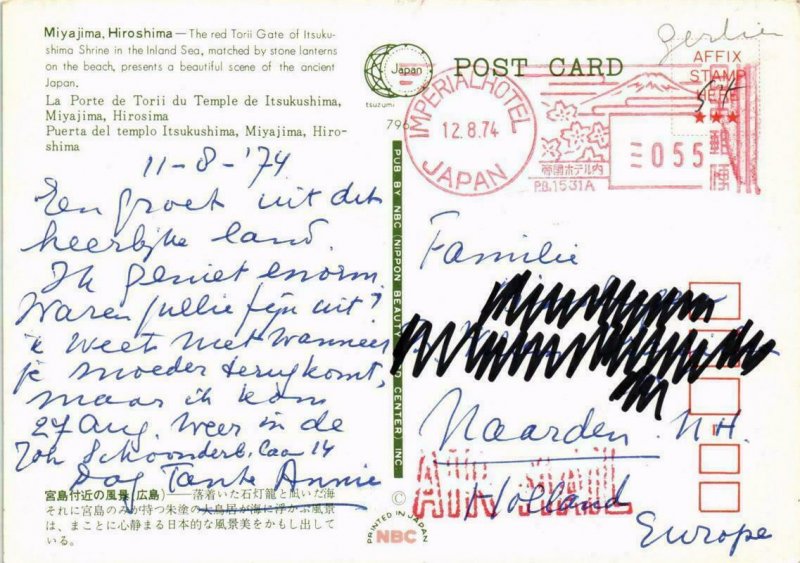 Miyajima, Hiroshima — The red Torii Gate of Itsuku-
shima Shrine in the Inland Sea, matched by stone lanterns
on the beach, presents a beautiful scene of the ancient
Japan.
La Porte de Torii du Temple de Itsukushima,
Miyajima, Hirosima
Puerta del templo Itsukushima, Miyajima, Hiro-
shima
11-8-'74
Een groet uit dit
heerlijke land.
Ik geniet enorm.
Waren jullie fijn uit?
'k Weet niet wanneer
je moeder terugkomt,
maar ik kom
27 Aug. weer in de
Joh Schoonderb. Laan 14
Dag Tante Annie
宮島付近の風景(広島)——落着いた石灯籠と凪いだ海
それに宮島のみが持つ朱塗の大鳥居が海に浮かぶ風景
は、まことに心静まる日本的な風景美をかもし出して
いる。
Japan
tsuzumi
796
PUB BY NBC (NIPPON BEAUTY CENTER) INC
©
PRINTED IN JAPAN
NBC
POST CARD
AFFIX
STAMP
HERE
IMPERIAL HOTEL
12.8.74
JAPAN
帝国ホテル内
P.B.1531A
055
郵便
Familie
Naarden. N.H.
AIR MAIL
Holland
Europe